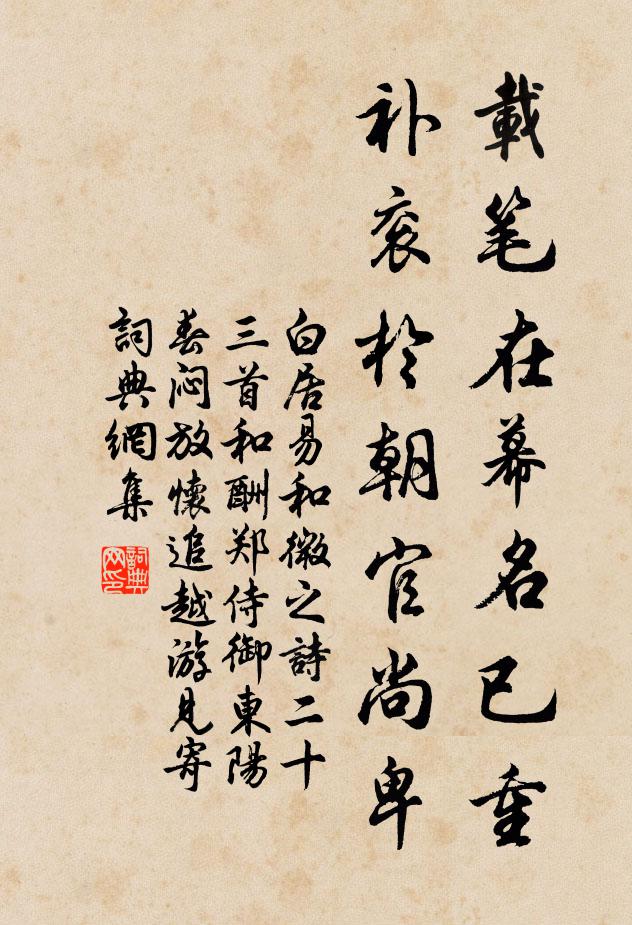 載笔在幕名已重
补衮於朝官尚卑
白居易和微之詩二十
三首和酬郑侍御東陽
春闷放懷追越游見寄
詞典網集
詞典
网印